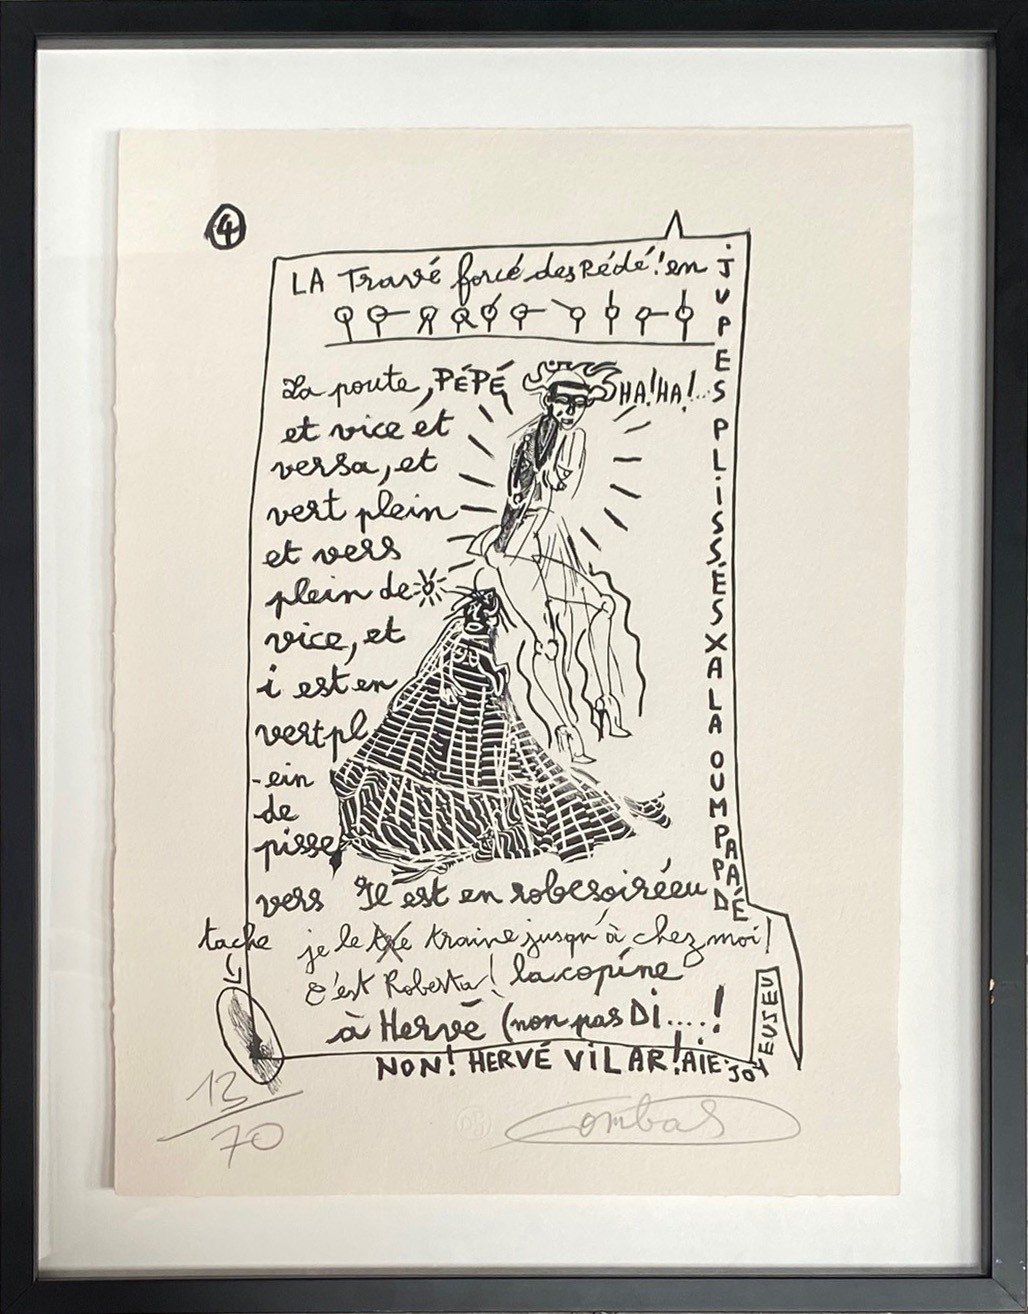 4
LA Travé forcé des Rédé! en
JUPES PLISSÈS X A LA OUMPAPA DÉ
La poute, PÉPÉ
HA! HA!...
et vice et
versa, et
vert plein
et vers
plein de
vice, et
i est en
vert pl
-ein
de
pisse
vers Il est en robesoiréeu
tache
je le traine jusqu'à chez moi!
C'est Roberta! la copine
à Hervé (non pas Di....!
NON! HERVÉ VILAR! AIE JOYEUSEU
13/70
Combas